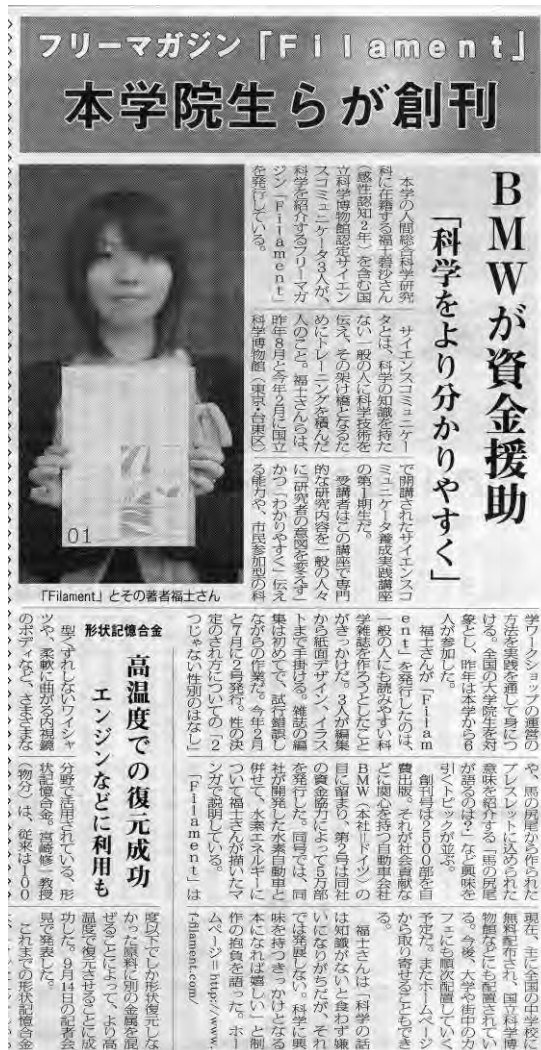 フリーマガジン「Filament」
本学院生らが創刊
BMWが資金援助
「科学をより分かりやすく」
本学の人間総合科学研究
科に在籍する福士碧沙さん
(感性認知2年)を含む国
立科学博物館認定サイエン
スコミュニケータ3人が、
科学を紹介するフリーマガ
ジン「Filament」
を発行している。
サイエンスコミュニケー
タとは、科学の知識を持た
ない一般の人に科学技術を
伝え、その架け橋となるた
めにトレーニングを積んだ
人のこと。福士さんらは、
昨年8月と今年2月に国立
科学博物館(東京・台東区)
で開講されたサイエンスコ
ミュニケータ養成実践講座
の第1期生だ。
受講者はこの講座で専門
的な研究内容を一般の人々
に「研究者の意図を変えず」
かつ「わかりやすく」伝え
る能力や、市民参加型の科
01
「Filament」とその著者福士さん
学ワークショップの運営の
方法を実践を通して身につ
ける。全国の大学院生を対
象とし、昨年は本学から6
人が参加した。
福士さんが「Filam
ent」を発行したのは、
一般の人にも読みやすい科
学雑誌を作ろうとしたこと
がきっかけだ。3人が編集
から紙面デザイン、イラス
トまで手掛ける。雑誌の編
集は初めてで、試行錯誤し
ながらの作業だ。今年2月
と7月に2号発行。性の決
定のされ方についての「2
つじゃない性別のはなし」
や、馬の尻尾から作られた
ブレスレットに込められた
意味を紹介する「馬の尻尾
が語るのは?」など興味を
引くトピックが並ぶ。
創刊号は2500部を自
費出版。それが社会貢献な
どに関心を持つ自動車会社
BMW(本社=ドイツ)の
目に留まり、第2号は同社
の資金協力によって5万部
を発行した。同号では、同
社が開発した水素自動車と
併せて、水素エネルギーに
ついて福士さんが描いたマ
ンガで説明している。
「Filament」は
現在、主に全国の中学校に
無料配布され、国立科学博
物館などにも配置されてい
る。今後、大学や街中のカ
フェにも順次配置していく
予定だ。またホームページ
から取り寄せることもでき
る。
福士さんは「科学の話
は知識がないと食わず嫌
いになりがちだが、それ
では発展しない。科学に興
味を持つきっかけとなる
本になれば嬉しい」と制
作の抱負を語った。ホー
ムページ=http://www.
filament.com/
形状記憶合金
高温度での復元成功
エンジンなどに利用も
型くずれしないワイシャ
ツや、柔軟に曲がる内視鏡
のボディなど、さまざまな
分野で活用されている、形
状記憶合金。宮崎修一教授
(物分)は、従来は100
度以下でしか形状復元しな
かった原料に別の金属を混
ぜることによって、より高
温度で復元させることに成
功した。9月14日の記者会
見で発表した。
これまでの形状記憶合金